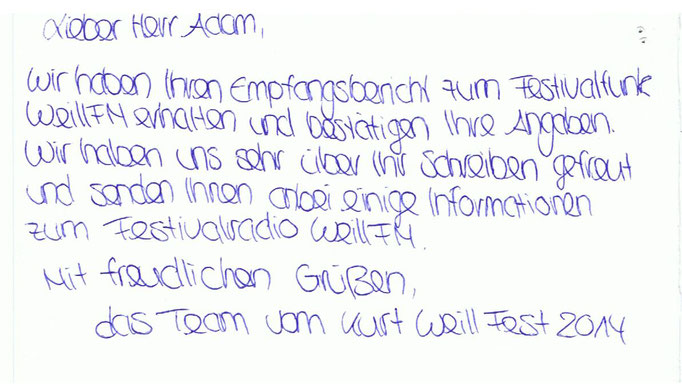 Lieber Herr Adam,
wir haben Ihren Empfangsbericht zum Festivalfunk
WeillFM erhalten und bestätigen Ihre Angaben.
Wir haben uns sehr über Ihr Schreiben gefreut
und senden Ihnen anbei einige Informationen
zum Festivalradio WeillFM.
Mit freudlichen Grüßen,
das Team vom Kurt Weill Fest 2014